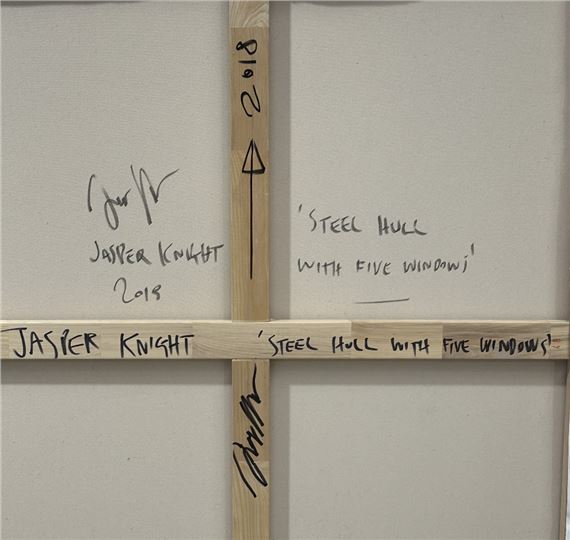 2018
JASPER KNIGHT
2018
'STEEL HULL
WITH FIVE WINDOWS'
JASPER KNIGHT
'STEEL HULL WITH FIVE WINDOWS'